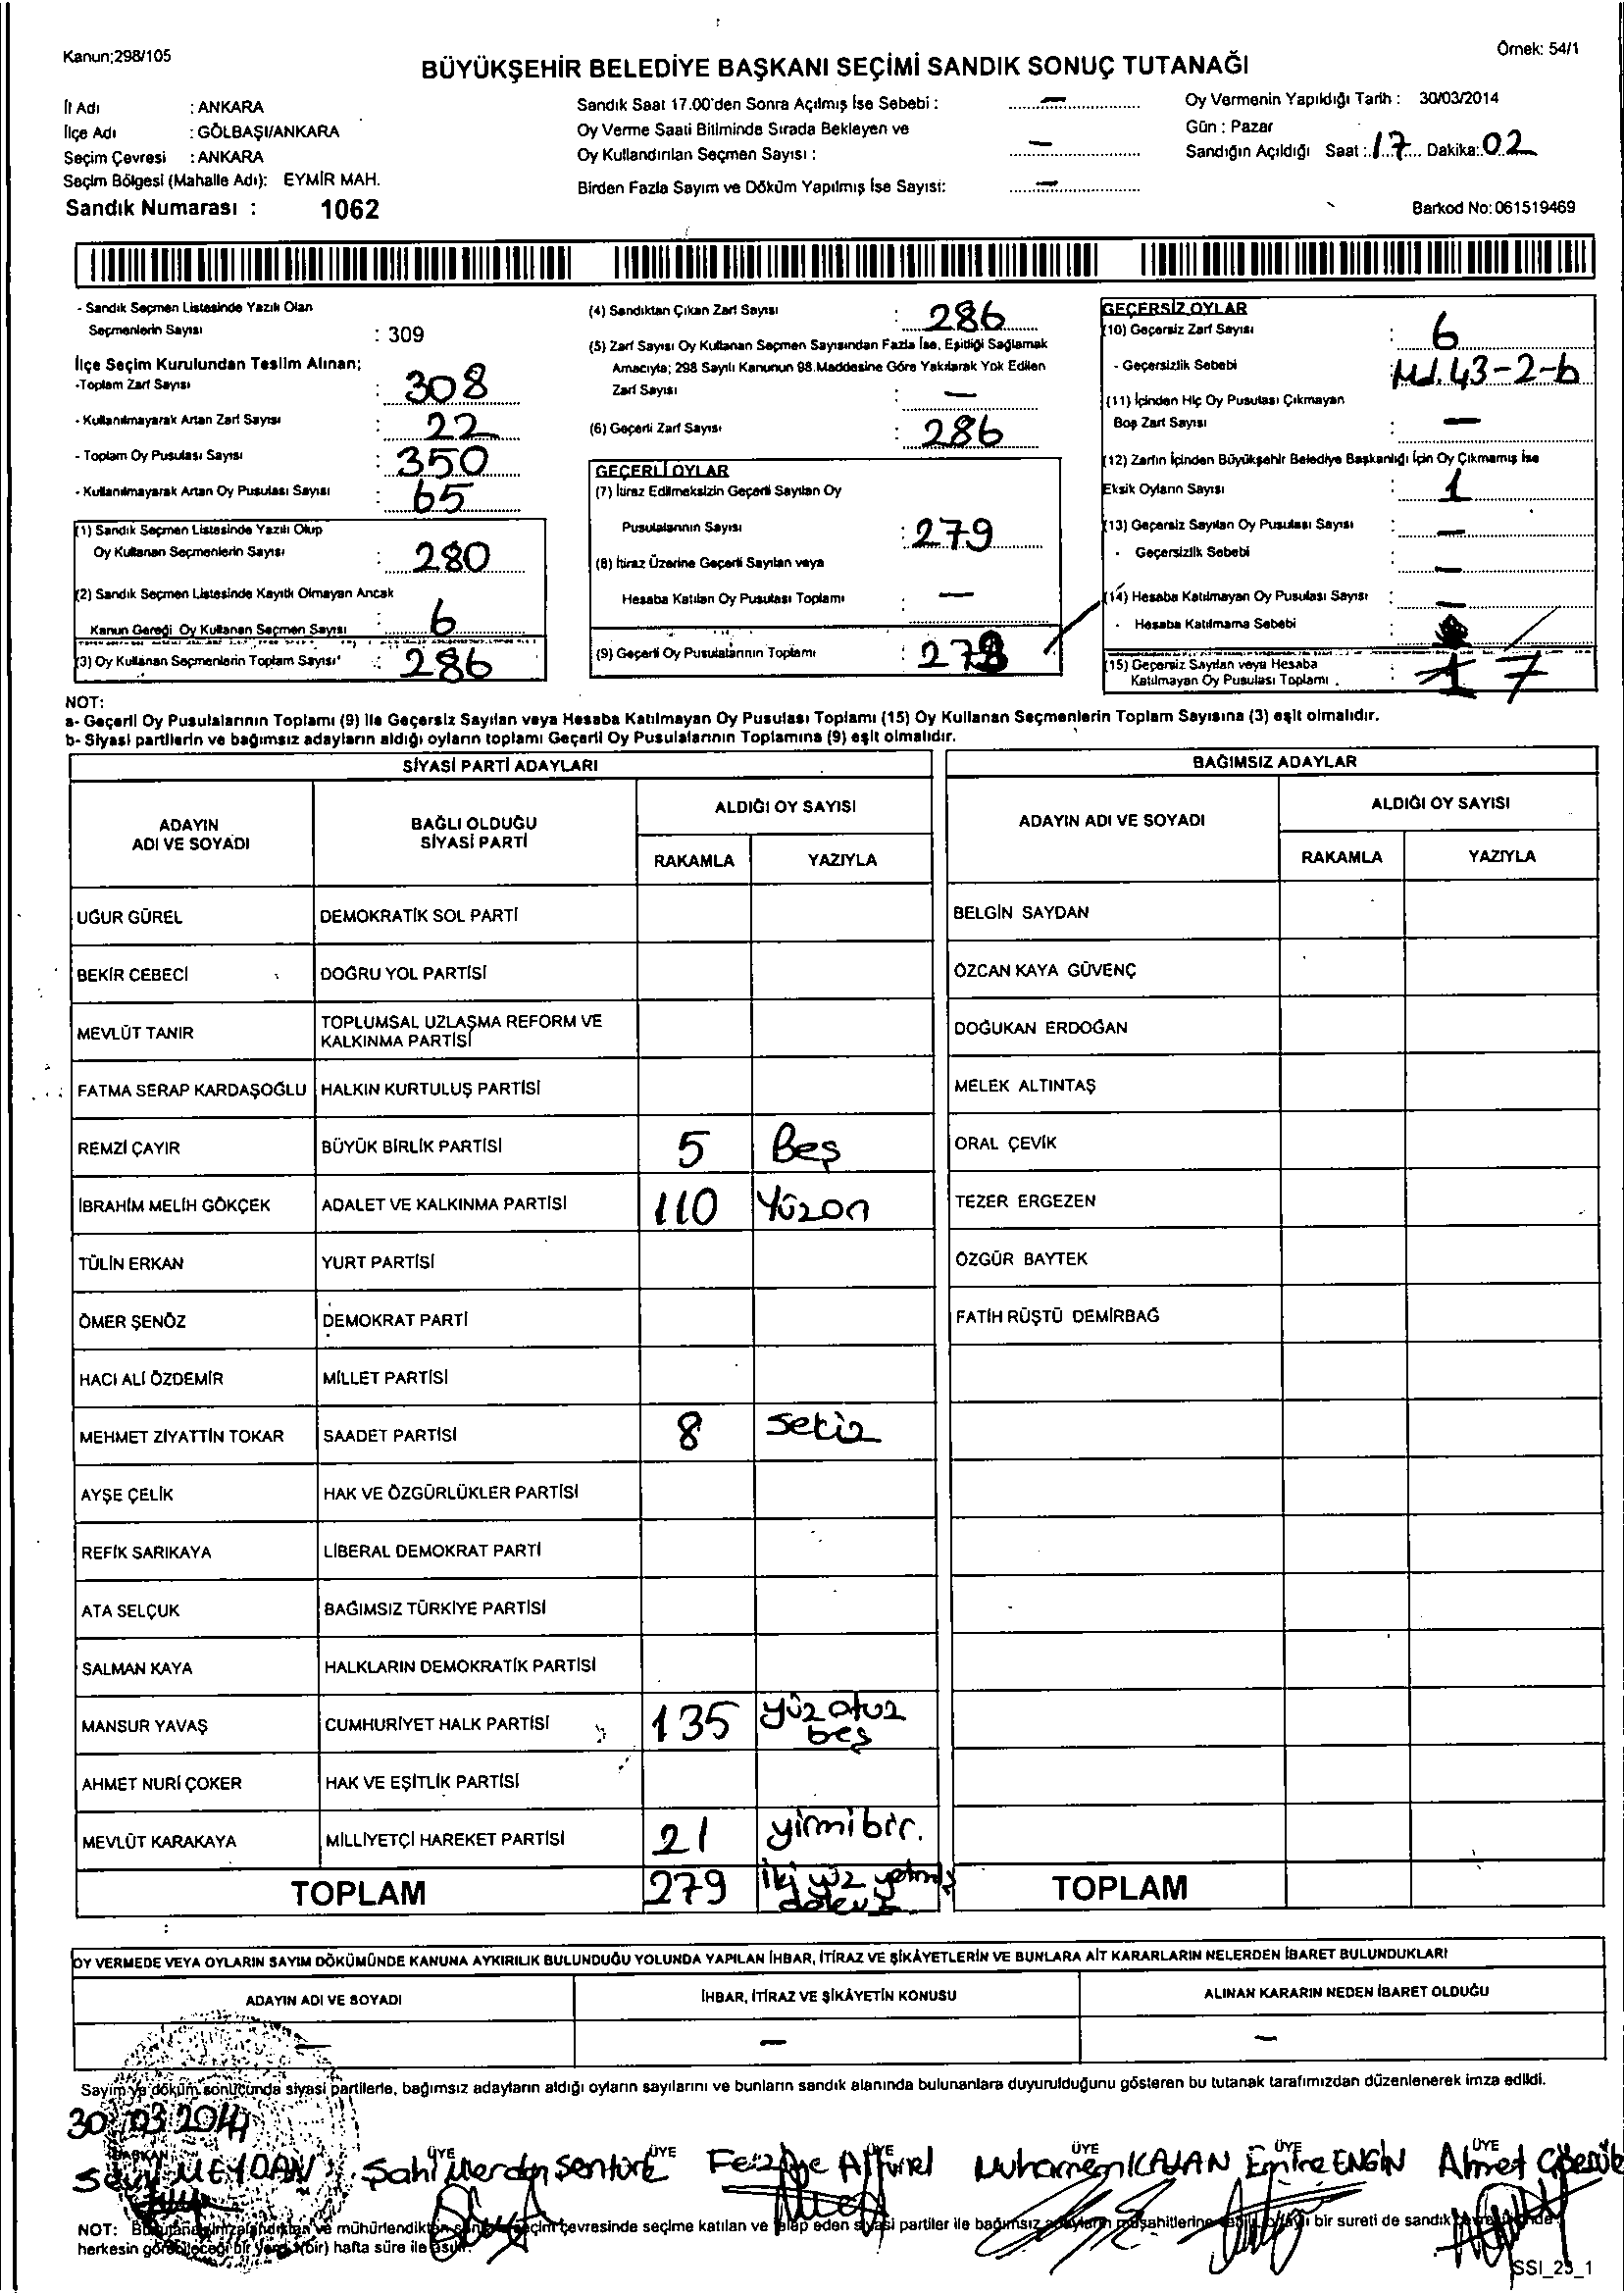 Kanun;298/105
Örnek: 54/1
BÜYÜKŞEHİR BELEDİYE BAŞKANI SEÇİMİ SANDIK SONUÇ TUTANAĞI
İl Adı : ANKARA
İlçe Adı : GÖLBAŞI/ANKARA
Seçim Çevresi : ANKARA
Seçim Bölgesi (Mahalle Adı): EYMİR MAH.
Sandık Numarası : 1062
Sandık Saat 17.00'den Sonra Açılmış İse Sebebi : —
Oy Verme Saati Bitiminde Sırada Bekleyen ve
Oy Kullandırılan Seçmen Sayısı : —
Birden Fazla Sayım ve Döküm Yapılmış İse Sayısı: —
Oy Vermenin Yapıldığı Tarih : 30/03/2014
Gün : Pazar
Sandığın Açıldığı Saat : 17 Dakika: 02
Barkod No: 061519469
- Sandık Seçmen Listesinde Yazılı Olan
Seçmenlerin Sayısı : 309
İlçe Seçim Kurulundan Teslim Alınan;
-Toplam Zarf Sayısı : 308
- Kullanılmayarak Artan Zarf Sayısı : 22
- Toplam Oy Pusulası Sayısı : 350
- Kullanılmayarak Artan Oy Pusulası Sayısı : 65
(1) Sandık Seçmen Listesinde Yazılı Olup
Oy Kullanan Seçmenlerin Sayısı : 280
(2) Sandık Seçmen Listesinde Kayıtlı Olmayan Ancak
Kanun Gereği Oy Kullanan Seçmen Sayısı : 6
(3) Oy Kullanan Seçmenlerin Toplam Sayısı : 286
(4) Sandıktan Çıkan Zarf Sayısı : 286
(5) Zarf Sayısı Oy Kullanan Seçmen Sayısından Fazla İse, Eşitliği Sağlamak
Amacıyla; 298 Sayılı Kanunun 98.Maddesine Göre Yakılarak Yok Edilen
Zarf Sayısı : —
(6) Geçerli Zarf Sayısı : 286
GEÇERLİ OYLAR
(7) İtiraz Edilmeksizin Geçerli Sayılan Oy
Pusulalarının Sayısı : 279
(8) İtiraz Üzerine Geçerli Sayılan veya
Hesaba Katılan Oy Pusulası Toplamı : —
(9) Geçerli Oy Pusulalarının Toplamı :
GEÇERSİZ OYLAR
(10) Geçersiz Zarf Sayısı : 6
- Geçersizlik Sebebi : Md. 43-2-b
(11) İçinden Hiç Oy Pusulası Çıkmayan
Boş Zarf Sayısı : —
(12) Zarfın İçinden Büyükşehir Belediye Başkanlığı İçin Oy Çıkmamış İse
Eksik Oyların Sayısı : 1
(13) Geçersiz Sayılan Oy Pusulası Sayısı : —
- Geçersizlik Sebebi : —
(14) Hesaba Katılmayan Oy Pusulası Sayısı : —
- Hesaba Katılmama Sebebi :
(15) Geçersiz Sayılan veya Hesaba
Katılmayan Oy Pusulası Toplamı : 7
NOT:
a- Geçerli Oy Pusulalarının Toplamı (9) ile Geçersiz Sayılan veya Hesaba Katılmayan Oy Pusulası Toplamı (15) Oy Kullanan Seçmenlerin Toplam Sayısına (3) eşit olmalıdır.
b- Siyasi partilerin ve bağımsız adayların aldığı oyların toplamı Geçerli Oy Pusulalarının Toplamına (9) eşit olmalıdır.
SİYASİ PARTİ ADAYLARI
ADAYIN ADI VE SOYADI BAĞLI OLDUĞU SİYASİ PARTİ ALDIĞI OY SAYISI
RAKAMLA YAZIYLA
UĞUR GÜREL DEMOKRATİK SOL PARTİ
BEKİR CEBECİ DOĞRU YOL PARTİSİ
MEVLÜT TANIR TOPLUMSAL UZLAŞMA REFORM VE KALKINMA PARTİSİ
FATMA SERAP KARDAŞOĞLU HALKIN KURTULUŞ PARTİSİ
REMZİ ÇAYIR BÜYÜK BİRLİK PARTİSİ 5 Beş
İBRAHİM MELİH GÖKÇEK ADALET VE KALKINMA PARTİSİ 110 Yüzon
TÜLİN ERKAN YURT PARTİSİ
ÖMER ŞENÖZ DEMOKRAT PARTİ
HACI ALİ ÖZDEMİR MİLLET PARTİSİ
MEHMET ZİYATTİN TOKAR SAADET PARTİSİ 8 Sekiz
AYŞE ÇELİK HAK VE ÖZGÜRLÜKLER PARTİSİ
REFİK SARIKAYA LİBERAL DEMOKRAT PARTİ
ATA SELÇUK BAĞIMSIZ TÜRKİYE PARTİSİ
SALMAN KAYA HALKLARIN DEMOKRATİK PARTİSİ
MANSUR YAVAŞ CUMHURİYET HALK PARTİSİ 135 yüz otuz beş
AHMET NURİ ÇOKER HAK VE EŞİTLİK PARTİSİ
MEVLÜT KARAKAYA MİLLİYETÇİ HAREKET PARTİSİ 21 yirmibir.
TOPLAM 279 iki yüz yetmiş dokuz
BAĞIMSIZ ADAYLAR
ADAYIN ADI VE SOYADI ALDIĞI OY SAYISI
RAKAMLA YAZIYLA
BELGİN SAYDAN
ÖZCAN KAYA GÜVENÇ
DOĞUKAN ERDOĞAN
MELEK ALTINTAŞ
ORAL ÇEVİK
TEZER ERGEZEN
ÖZGÜR BAYTEK
FATİH RÜŞTÜ DEMİRBAĞ
TOPLAM
OY VERMEDE VEYA OYLARIN SAYIM DÖKÜMÜNDE KANUNA AYKIRILIK BULUNDUĞU YOLUNDA YAPILAN İHBAR, İTİRAZ VE ŞİKÂYETLERİN VE BUNLARA AİT KARARLARIN NELERDEN İBARET BULUNDUKLARI
ADAYIN ADI VE SOYADI İHBAR, İTİRAZ VE ŞİKÂYETİN KONUSU ALINAN KARARIN NEDEN İBARET OLDUĞU
— — —
Sayım ve döküm sonucunda siyasi partilerle, bağımsız adayların aldığı oyların sayılarını ve bunların sandık alanında bulunanlara duyurulduğunu gösteren bu tutanak tarafımızdan düzenlenerek imza edildi.
30 03 2014
BAŞKAN ÜYE ÜYE ÜYE ÜYE ÜYE ÜYE
MEYDAN Şahi Merdan Şentürk Muhammen KALAN Emre ENGİN Ahmet
NOT: Bu tutanağın imzalandıktan ve mühürlendikten sonra seçim çevresinde seçime katılan ve talep eden siyasi partiler ile bağımsız adayların müşahitlerine bir sureti de sandık
herkesin görebileceği bir yere (bir) hafta süre ile asılır.
SSI_23_1